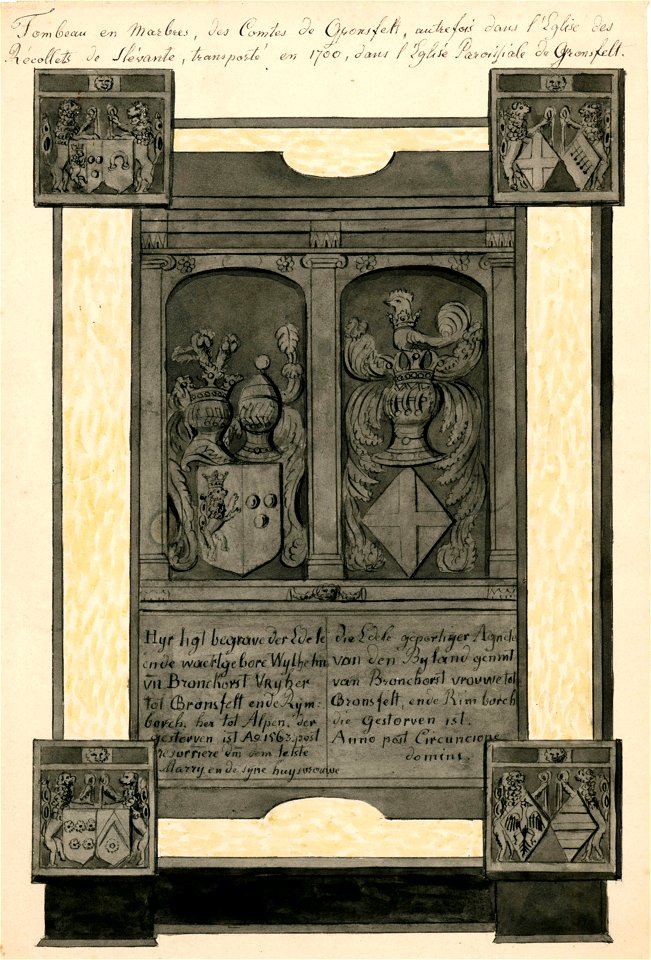 Tombeau en Marbres, des Comtes de Gronsfelt, autrefois dans l'Eglise des
Récollets de Slévante, transporté en 1700, dans l'Eglise Paroissiale de Gronsfelt.
Hyr ligt begrave der Edele
ende waelgebore Wylhelm
vn Bronckhorst Vryher
tot Gronsfelt ende Rym:
borch, her tot Alpen, der
gestorven ist Ao 1563. post
resurriere dm dem letste
Marry ende syne huysvrouwe
die Edele geportiger Agnele
van den Byland genmt
van Bronchorst vrouwe tot
Gronsfelt, ende Rimborch
die gestorven ist.
Anno post Circuncione
domini.